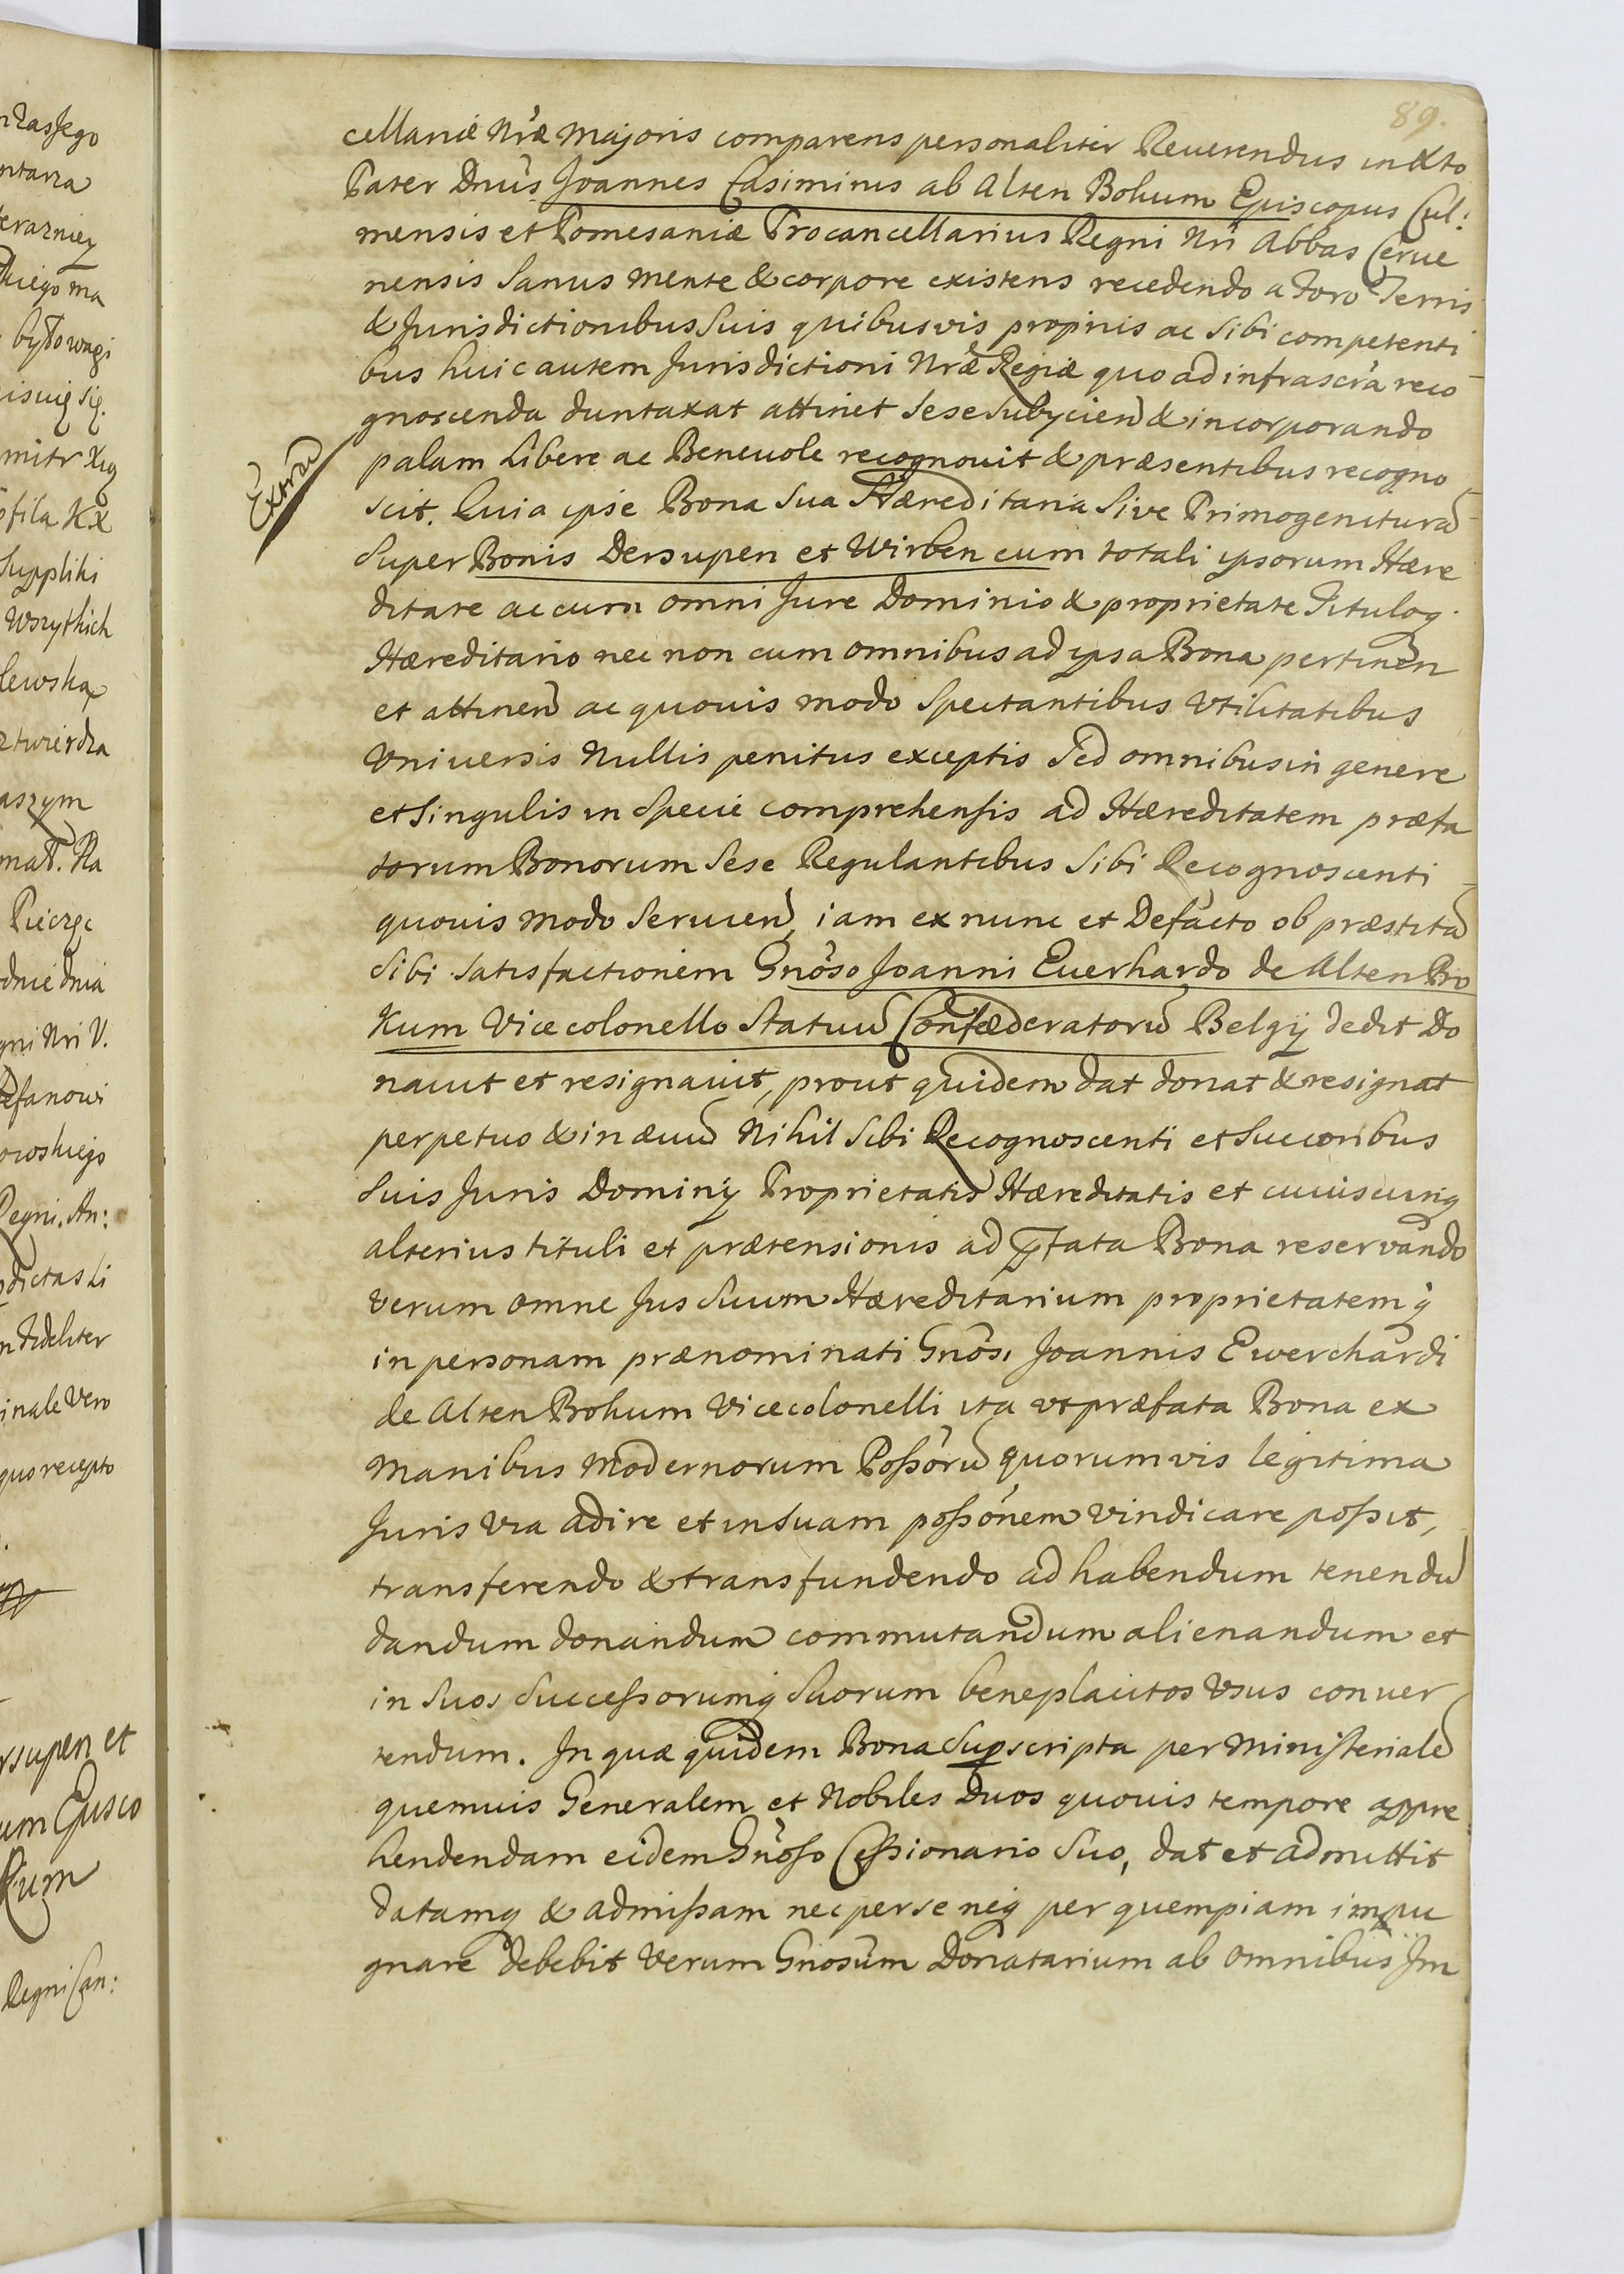 89.
cellariæ Nræ Majoris comparens personaliter Reuerendus in Xto
Pater Dnus Joannes Casimirus ab Alten Bokum Episcopus Cul:
mensis et Pomesaniæ Procancellarius Regni Nri Abbas Cerue
nensis Sanus mente & corpore existens recedendo a foro Terris
& Jurisdictionibus Suis quibusvis proprijs ac sibi competenti
bus huic autem Jurisdictioni Nræ Regiæ quo ad infrascra reco
gnoscenda duntaxat attinet sese subijcien & incorporando
palam Libere ac Beneuole recognouit & præsentibus recogno
Extrad
scit. Quia ipse Bona Sua Hæreditaria Sive Primogenitura
Super Bonis Dersupen et Wirben cum totali ipsorum Hære
ditate ac cum omni Jure Dominio & proprietate Tituloq
Hæreditario nec non cum omnibus ad ipsa Bona pertinen
et attinen ac quouis modo Spectantibus Vtilitatibus
Vniuersis Nullis penitus exceptis Sed omnibus in genere
et Singulis in Specie comprehensis ad Hæreditatem præfa
torum Bonorum Sese Regulantibus Sibi Recognoscenti
quouis modo Seruien, iam ex nunc et Defacto ob præstita
Sibi Satisfactionem Gnoso Joanni Euerhardo de Alten Bo
Kum Vicecolonello Statuu Confæderatoru Belgij dedit Do
nauit et resignauit, prout quidem dat donat & resignat
perpetuo & in æuu Nihil Sibi Recognoscenti et Succoribus
Suis Juris Dominij Proprietatis Hæreditatis et cuiuscunq
alterius tituli et prætensionis ad pfata Bona reservando
verum omne Jus Suum Hæreditarium proprietatemq
in personam prænominati Gnosi Joannis Ewerchardi
de Alten Bokum Vicecolonelli ita vt præfata Bona ex
Manibus Modernorum Possoru quorumvis legitima
Juris via adire et in Suam possonem vindicare possit,
transferendo & transfundendo ad habendum tenendu
dandum donandum commutandum alienandum et
in Suos Successorumq Suorum beneplacitos Vsus conuer
tendum. In quæ quidem Bona Supscripta per Ministeriale
quemuis Generalem et Nobiles Duos quouis tempore appre
hendendam eidem Gnoso Cessionario Suo, dat et admittit
datamq & admissam nec per se neq per quempiam impu
gnare debebit verum Gnosum Donatarium ab omnibus Im